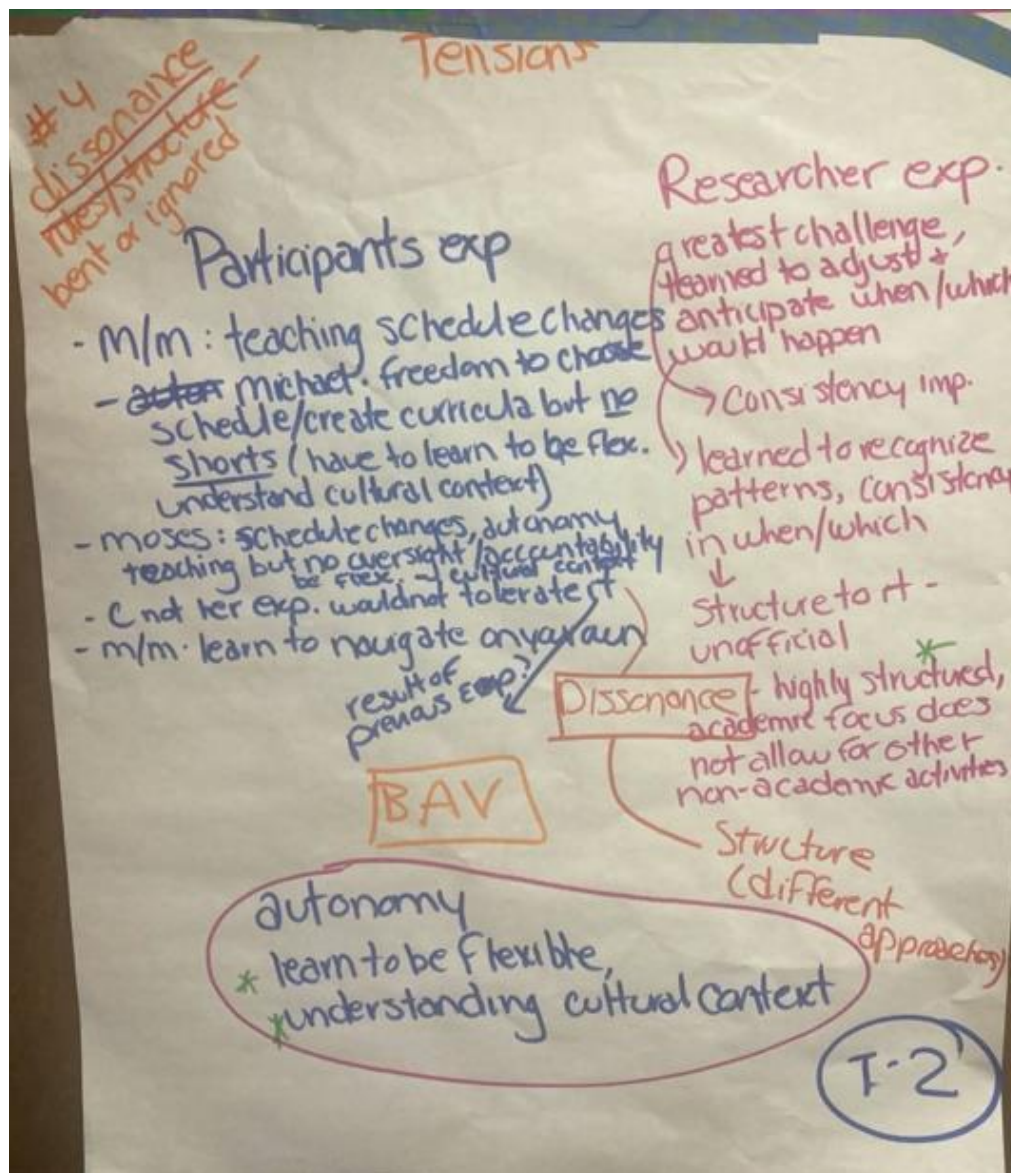 Tensions
#4
dissonance
rules/structure -
bent or ignored
Participants exp
- M/m: teaching schedule changes
- Michael: freedom to choose
schedule/create curricula but no
shorts (have to learn to be flex.
understand cultural context)
- Moses: schedule changes, autonomy
teaching but no oversight/accountability
be flex. → cultural context
- C not her exp. wouldnot tolerate it
- m/m: learn to navigate
result of
previous exp?
Researcher exp.
greatest challenge,
learned to adjust +
anticipate when/which
would happen
→ Consistency imp.
learned to recognize
patterns, consistency
in when/which
↓
Structure to it -
unofficial
*
Dissonance - highly structured,
academic focus does
not allow for other
non-academic activities
Structure
(different
approaches)
BAV
autonomy
* learn to be flexible,
* understanding cultural context
T-2